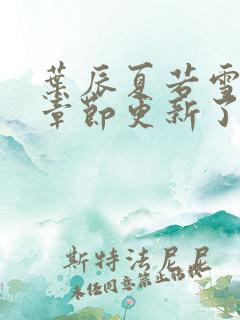 葉辰夏若雪
章節更新了
斯特法尼尼
未经同意禁止转载